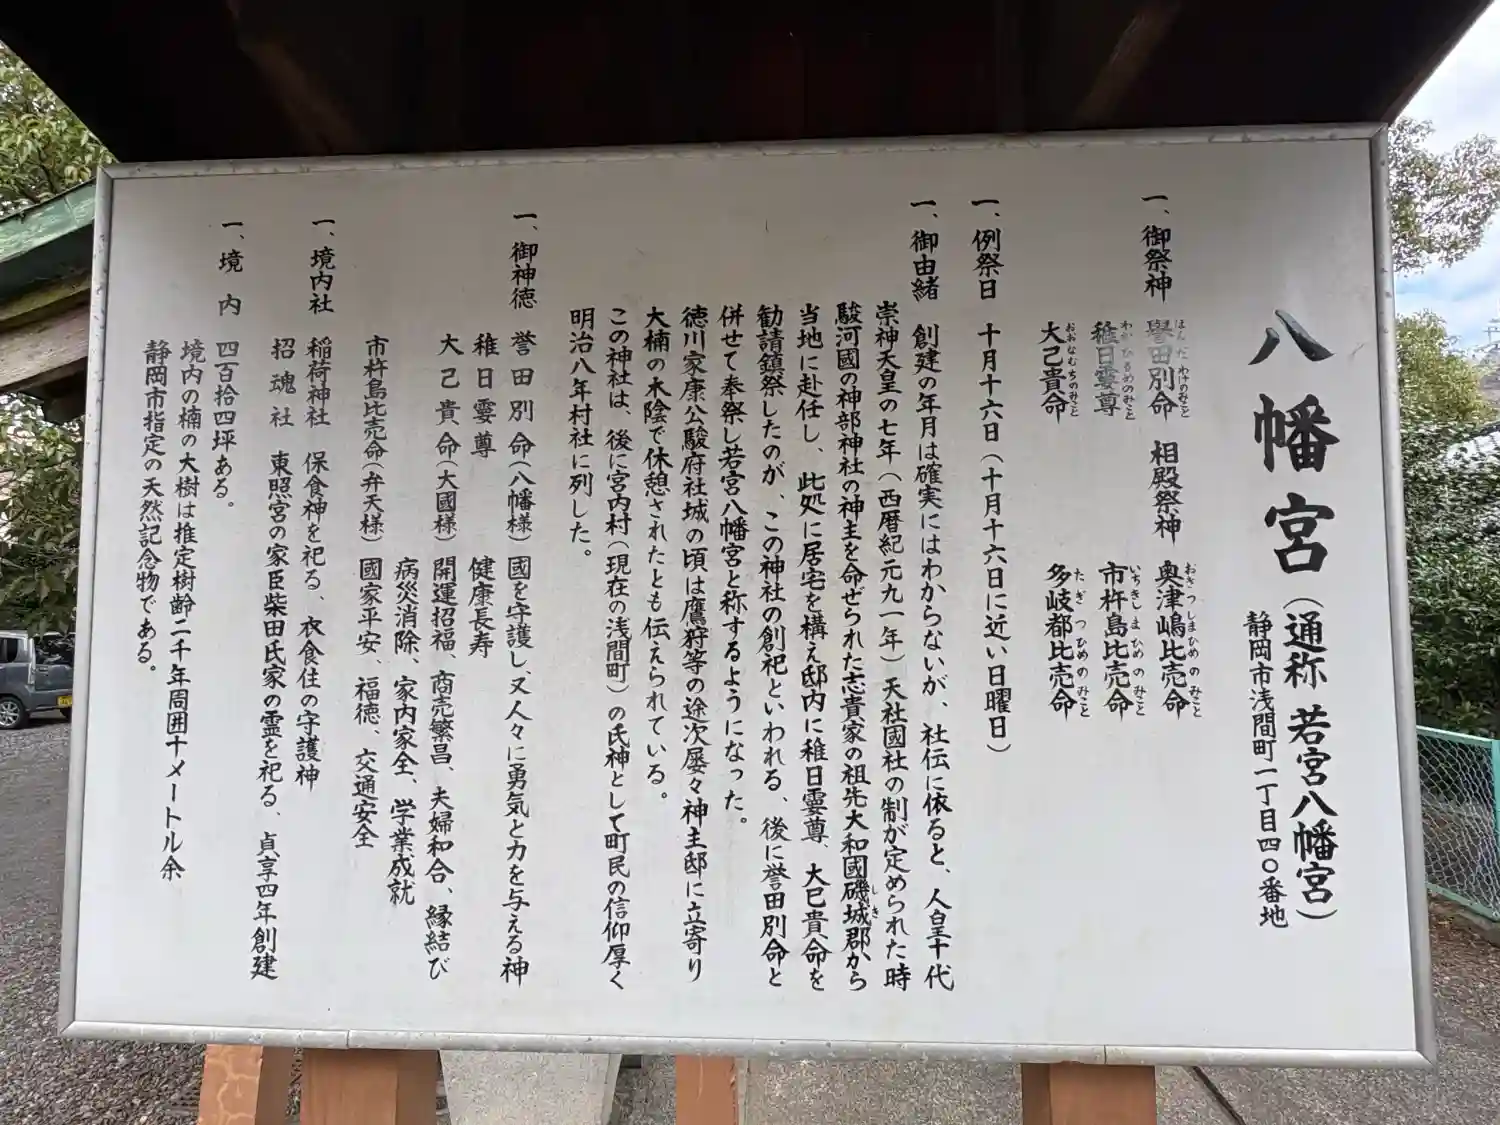 八幡宮（通称 若宮八幡宮）
静岡市浅間町一丁目四〇番地
一、御祭神 譽田別命 相殿祭神 奥津嶋比売命
ほんだわけのみこと おきつしまひめのみこと
稚日霎尊 市杵島比売命
わかひるめのみこと いちきしまひめのみこと
大己貴命 多岐都比売命
おおなむちのみこと たぎつひめのみこと
一、例祭日 十月十六日（十月十六日に近い日曜日）
一、御由緒 創建の年月は確実にはわからないが、社伝に依ると、人皇十代
崇神天皇の七年（西暦紀元九一年）天社國社の制が定められた時
駿河國の神部神社の神主を命ぜられた志貴家の祖先大和國磯城郡から
しき
当地に赴任し、此処に居宅を構え邸内に稚日霎尊、大巳貴命を
勧請鎮祭したのが、この神社の創祀といわれる、後に誉田別命と
併せて奉祭し若宮八幡宮と称するようになった。
徳川家康公駿府社城の頃は鷹狩等の途次屡々神主邸に立寄り
大楠の木陰で休憩されたとも伝えられている。
この神社は、後に宮内村（現在の浅間町）の氏神として町民の信仰厚く
明治八年村社に列した。
一、御神徳 誉田別命（八幡様）國を守護し、又人々に勇気と力を与える神
稚日霎尊 健康長寿
大己貴命（大國様）開運招福、商売繁昌、夫婦和合、縁結び
病災消除、家内家全、学業成就
市杵島比売命（弁天様）國家平安、福徳、交通安全
一、境内社 稲荷神社 保食神を祀る、衣食住の守護神
招魂社 東照宮の家臣柴田氏家の霊を祀る、貞享四年創建
一、境内 四百拾四坪ある。
境内の楠の大樹は推定樹齢二千年周囲十メートル余
静岡市指定の天然記念物である。